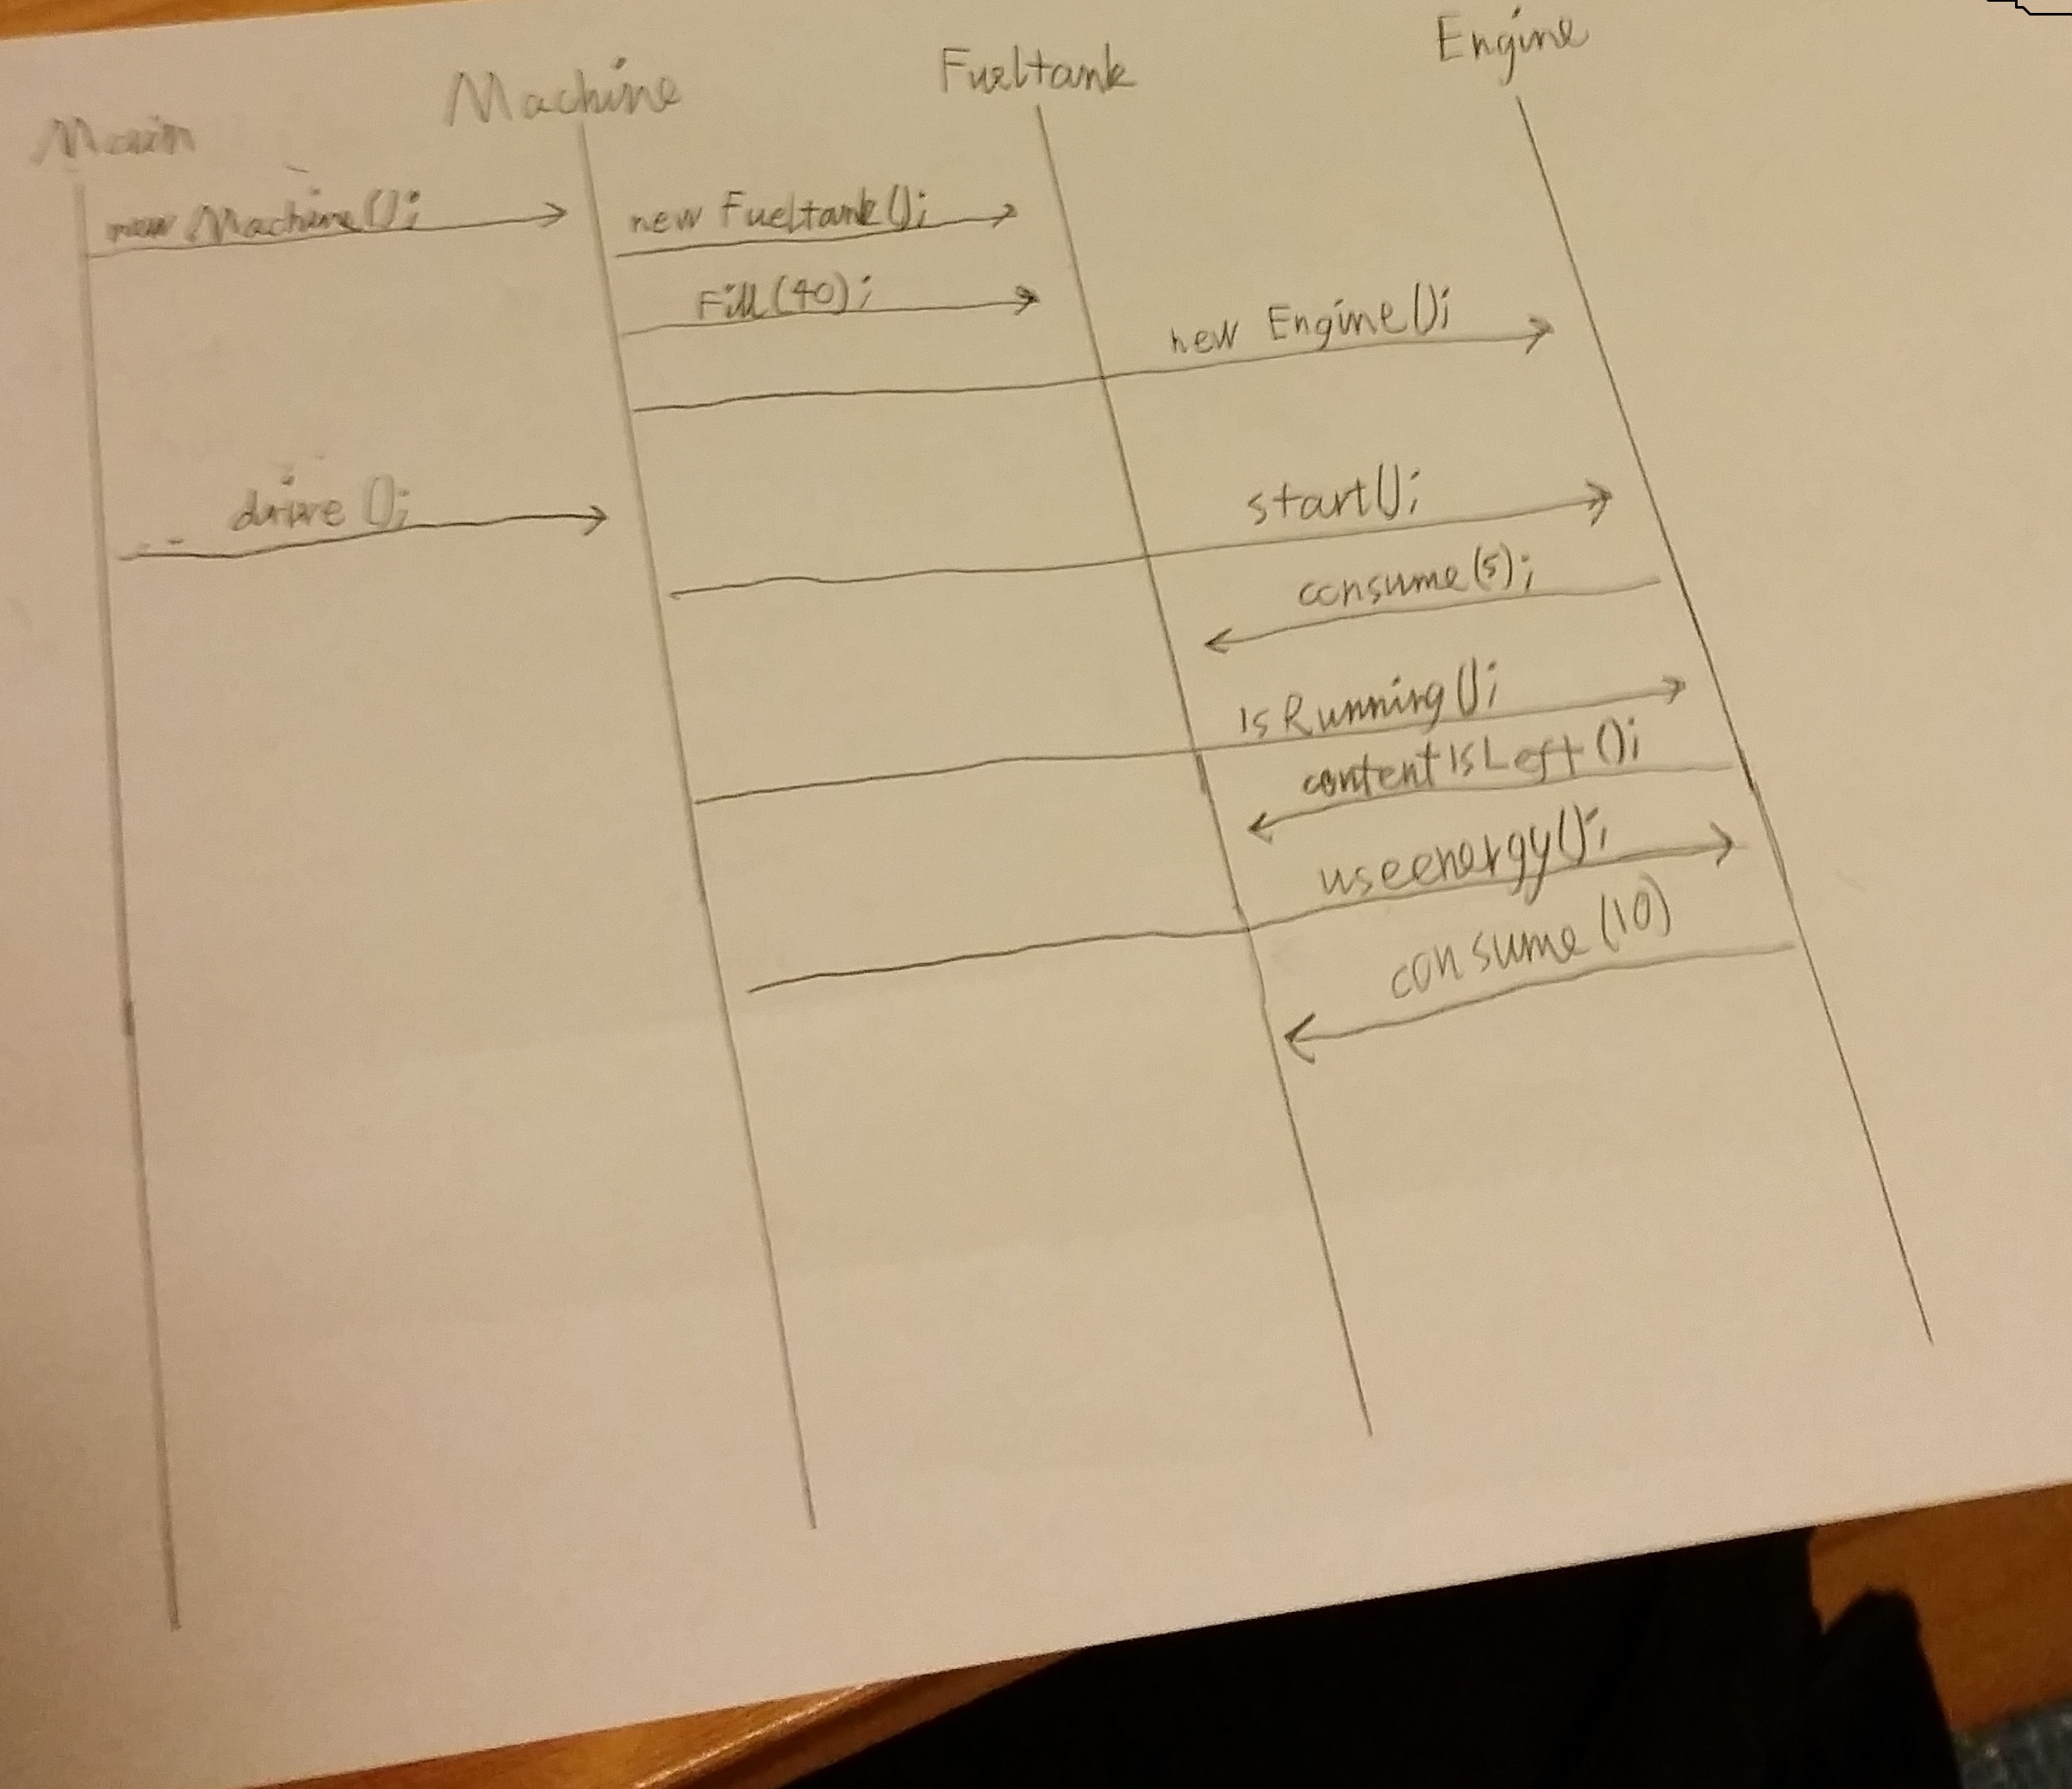 Main
Machine
Fueltank
Engine
new Machine();
new Fueltank();
Fill(40);
new Engine();
drive();
start();
consume(5);
isRunning();
contentIsLeft();
useenergy();
consume(10)